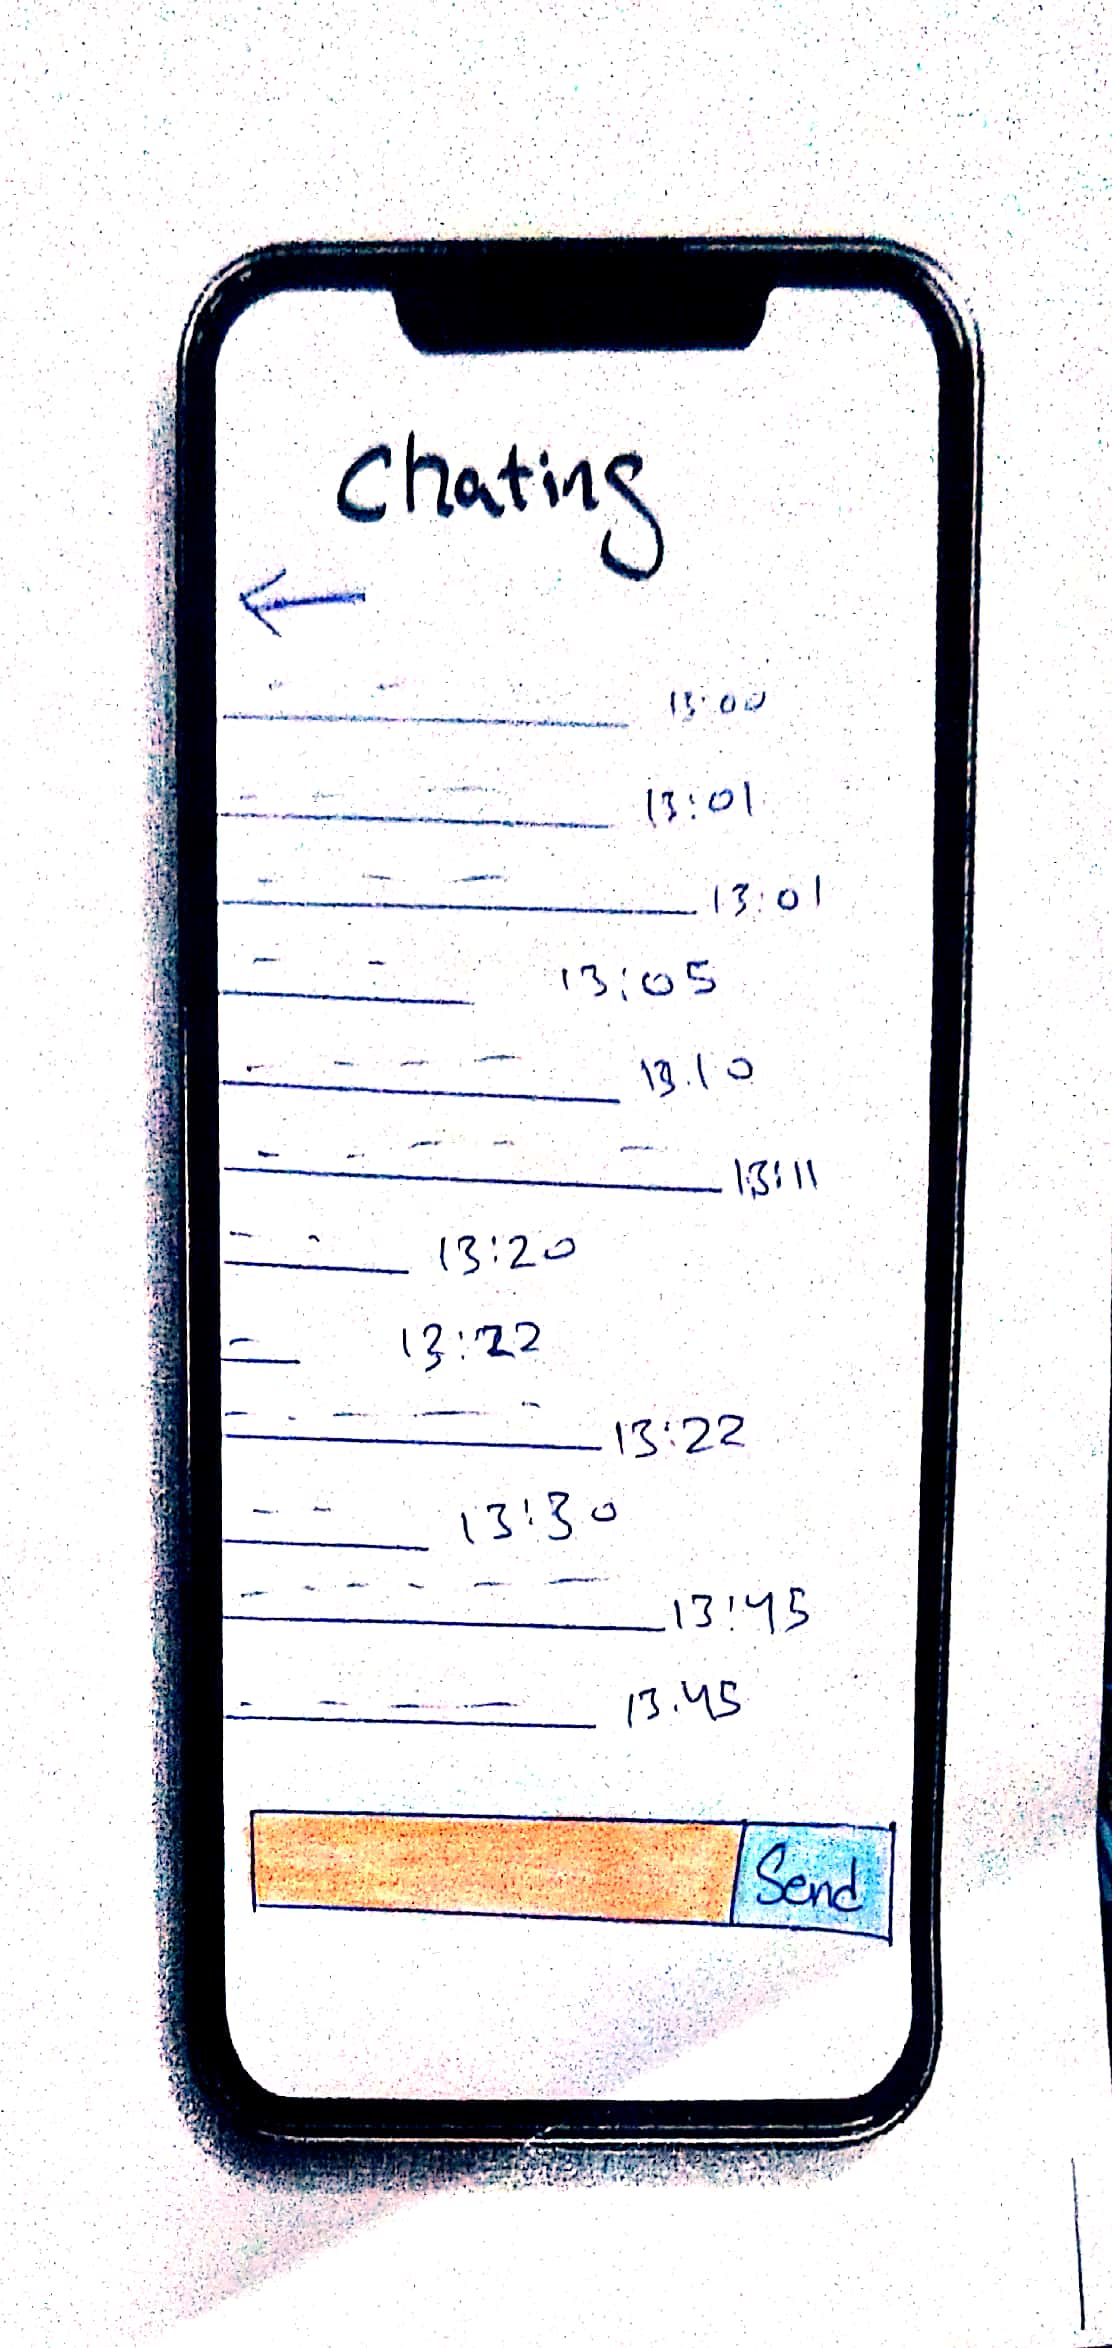 Chating
13:00
13:01
13:01
13:05
13.10
13:11
13:20
13:22
13:22
13:30
13:45
13.45
Send